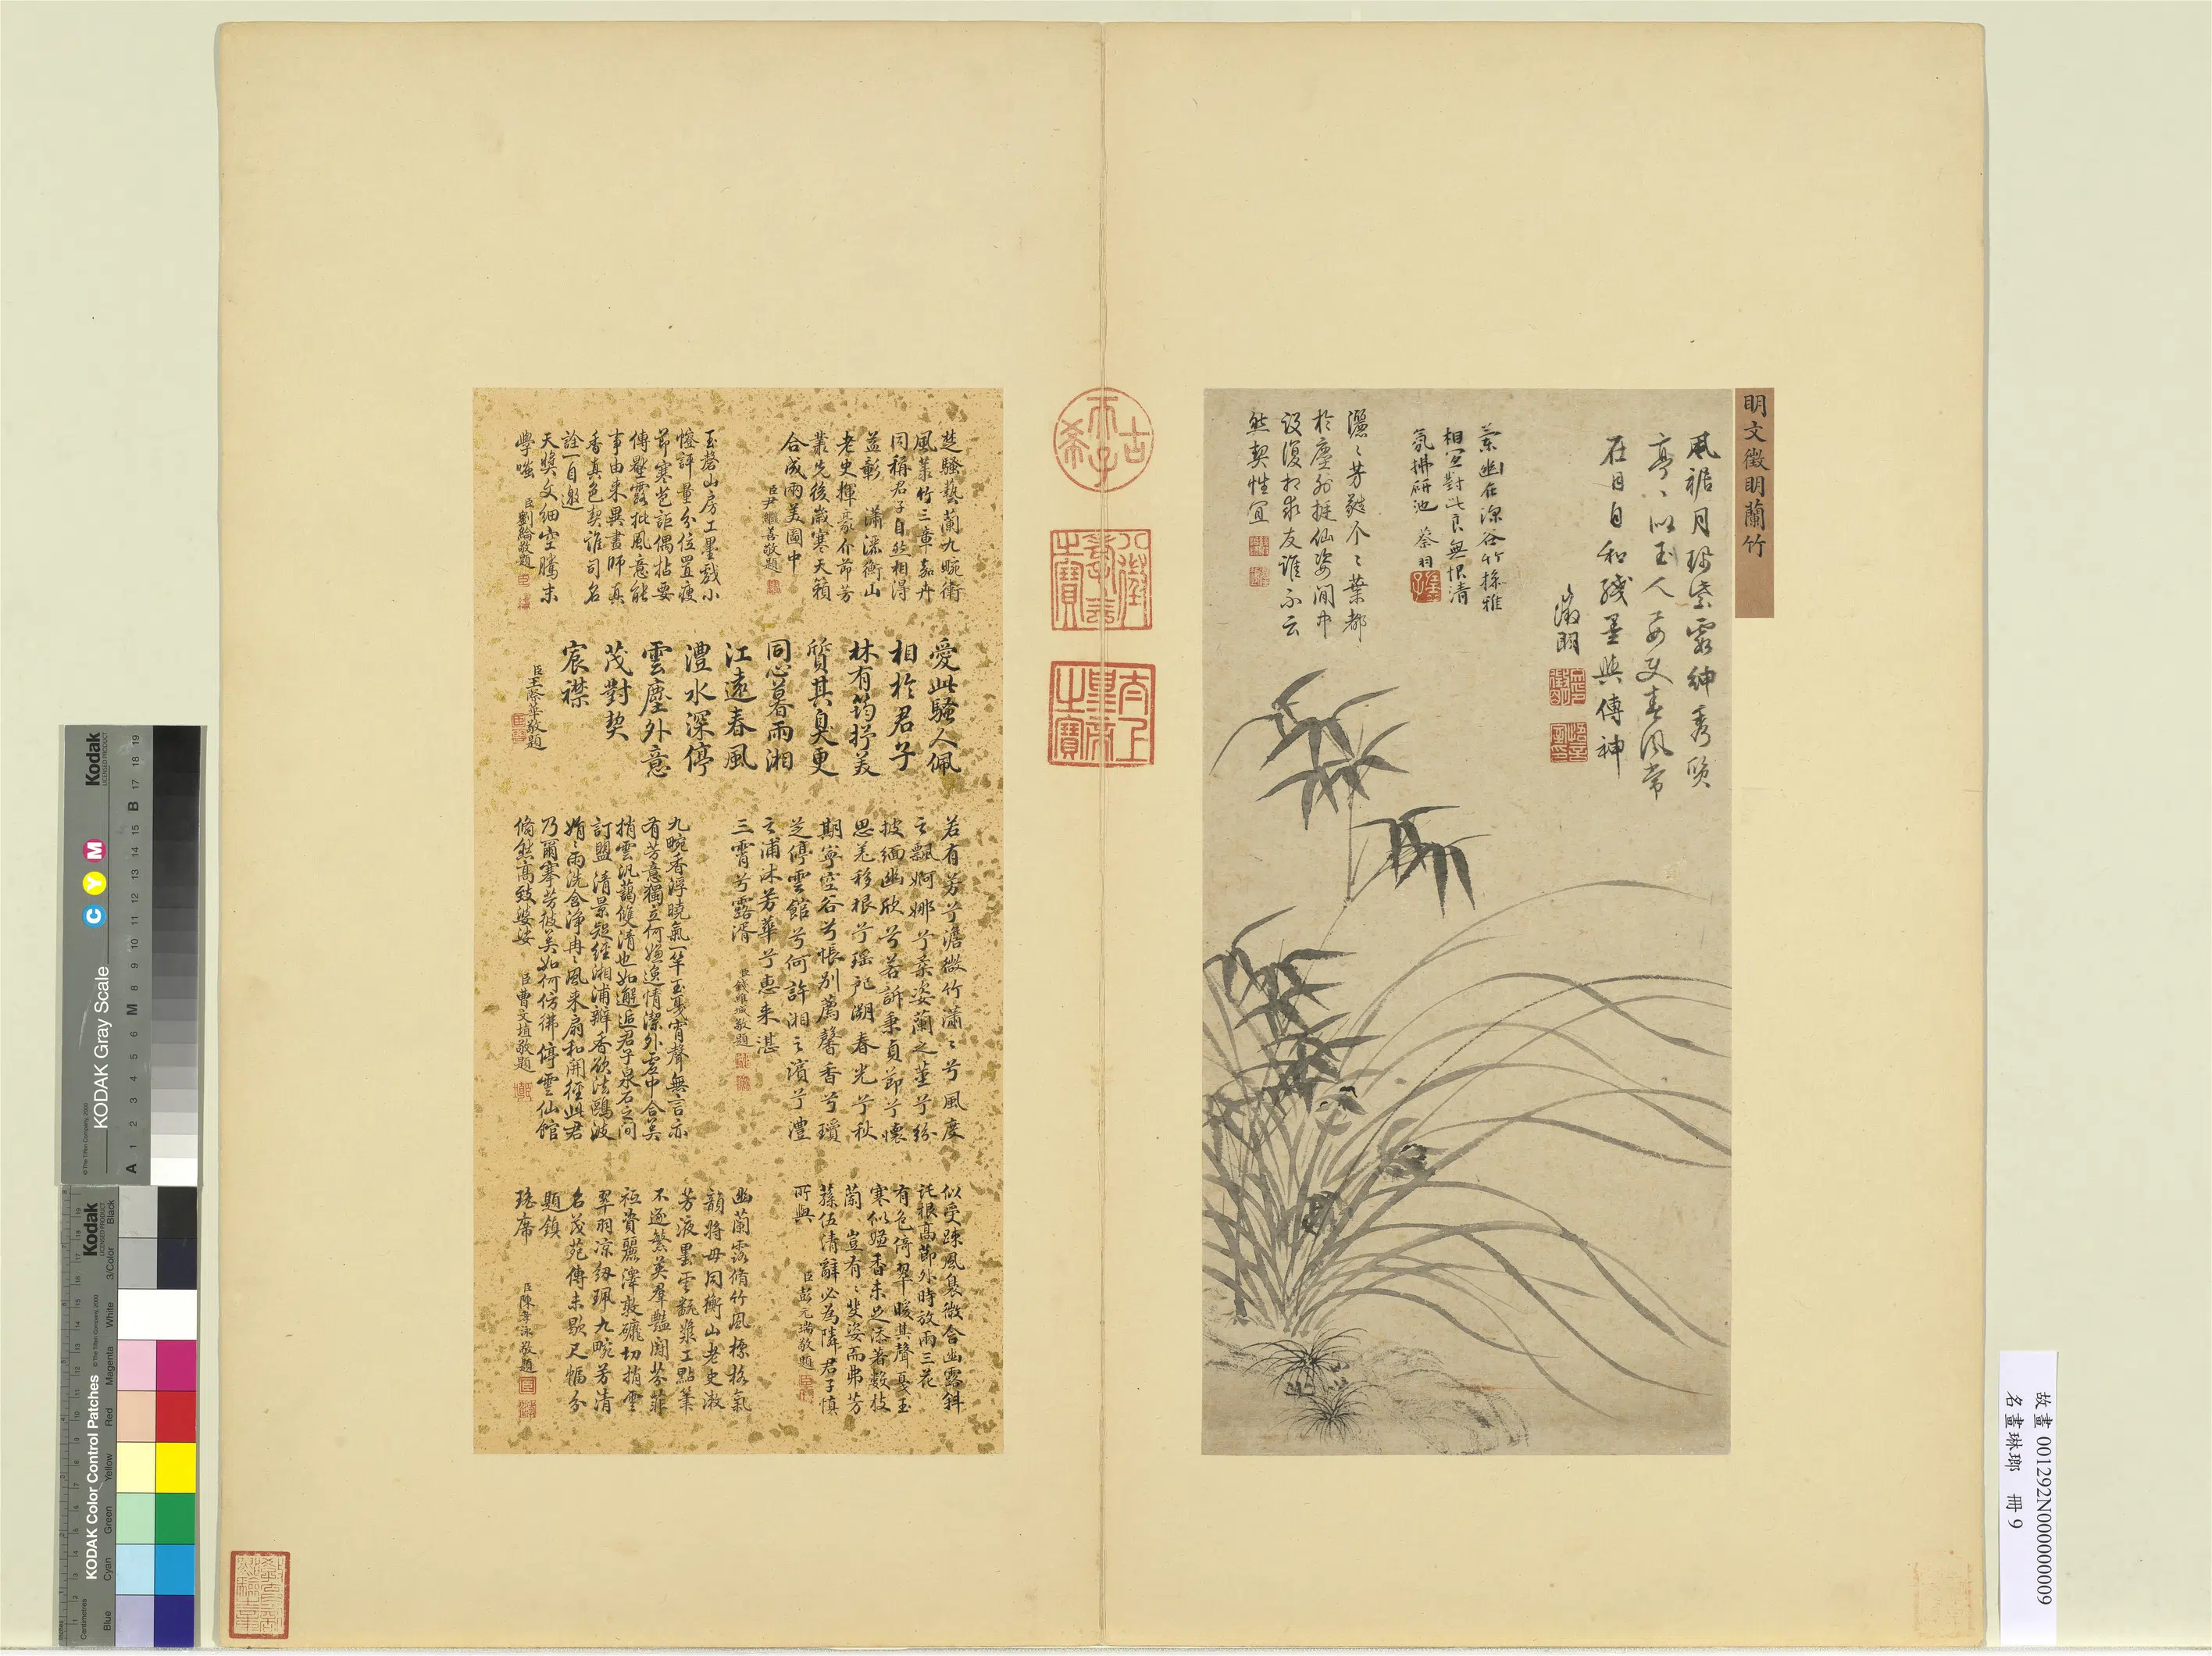 明文徵明蘭竹
風裾月珮紫霞紳秀質
亭亭似玉人要使春風常
在目自和殘墨與傳神
徵明
蘭幽在深谷竹操雅
相宜對此良無恨清
氛拂硯池 蔡羽
濃濃芳蕤个个葉都
於塵外挺仙姿閒中
設復相求友誰不云
然契性宜
古希天子
八徵耄念之寶
太上皇帝之寶
楚騷藝蘭九畹衛
風菉竹三章嘉卉
同稱君子自然相得
益彰 瀟灑衡山
老史揮豪介節芳
叢先後歲寒天籟
合成兩美圖中
臣尹繼善敬題
玉磬山房工墨戲小
幢評量分位置瘦
節寒芭詎偶拈要
傳墊露批風意能
事由來異畫師真
香真色契誰司名
詮一自邀
天獎文細空騰末
學嗤 臣劉綸敬題
愛此騷人佩
相於君子
林有筠抒美
質其臭更
同心暮雨湘
江遠春風
澧水深停
雲塵外意
茂對契
宸襟
臣王際華敬題
若有芳兮澹微竹瀟瀟兮風度
之飄婀娜兮柔姿蘭之堇兮紛
披緬幽欣兮若訴秉貞節兮懷
思羌移根兮瑤圯湖春光兮秋
期寧空谷兮悵別薦馨香兮瓊
芝停雲館兮何許湘之濱兮澧
之浦沐芳華兮惠來湛
三霄兮露湑
臣錢維城敬題
九畹香浮曉氣一竿玉戛宵聲無言亦
有芳意獨立何嫌逸情潔外虛中合美
捎雲汎藹雙清也如邂逅君子泉石之間
訂盟清景短經湘浦瓣香欲法鷗波
娟娟雨洗含淨冉冉風來扇和開徑此君
乃爾搴芳彼美如何仿彿停雲仙館
翛然高致婆娑 臣曹文埴敬題
似受疎風裊微合幽露斜
託根高節外時放兩三花
有色倚翠暖其聲戛玉
寒似嫌香未足添著數枝
蘭 豈有斐斐姿而弗芳
蓀伍清辭必為隣君子慎
所與 臣彭元瑞敬題
幽蘭露脩竹風標格氣
韻將毋同衡山老史漱
芳液墨雲翫瀿工點筆
不逐繁英羣豔闘芬菲
祗資麗澤敦礲切捎雲
翠羽凉紉珮九畹芳清
名茂苑傳未歇尺幅分
題鎮
瑤席
臣陳孝泳敬題
KODAK Gray Scale
Kodak
LICENSED PRODUCT
©The Tiffen Company, 2000
C Y M
A 1 2 3 4 5 6 M 8 9 10 11 12 13 14 15 B 17 18 19
KODAK Color Control Patches
©The Tiffen Company, 2000
Kodak
LICENSED PRODUCT
Centimetres
Blue Cyan Green Yellow Red Magenta White 3/Color Black
故畫 001292N000000009
名畫琳瑯 冊 9